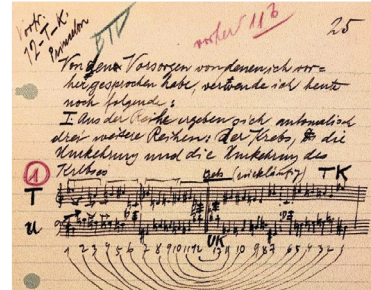 Vortr.
12-T-K.
Princeton
vorher 11b
25
Von den Vorsorgen von denen ich vor=
her gesprochen habe, verwende ich heute
noch folgende:
I. Aus der Reihe ergeben sich automatisch
drei weitere Reihen: der Krebs, die
Umkehrung und die Umkehrung des
Krebses
1
Krebs (rückläufig)
TK
T
U
UK
1 2 3 4 5 6 7 8 9 10 11 12 12 11 10 9 8 7 6 5 4 3 2 1